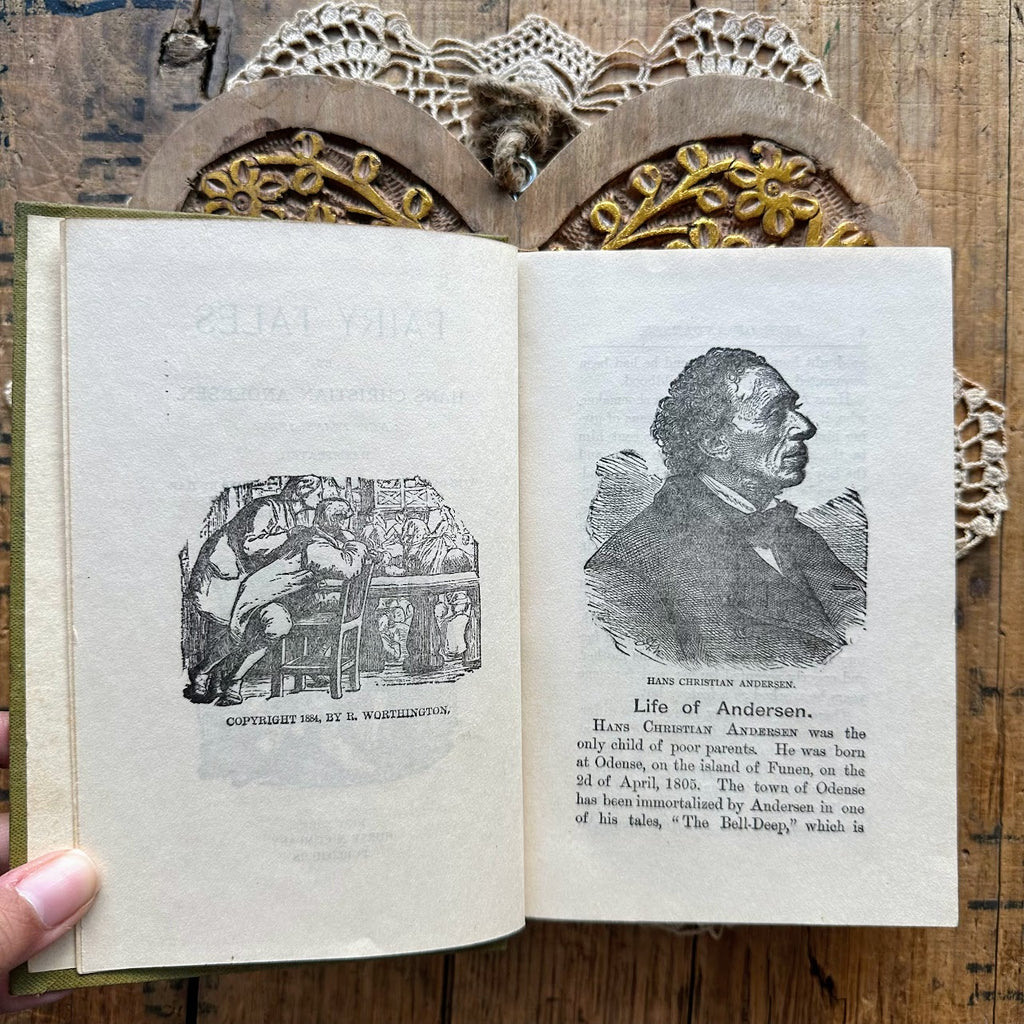 COPYRIGHT 1884, BY R. WORTHINGTON.
HANS CHRISTIAN ANDERSEN.
Life of Andersen.
HANS CHRISTIAN ANDERSEN was the
only child of poor parents. He was born
at Odense, on the island of Funen, on the
2d of April, 1805. The town of Odense
has been immortalized by Andersen in one
of his tales, "The Bell-Deep," which is